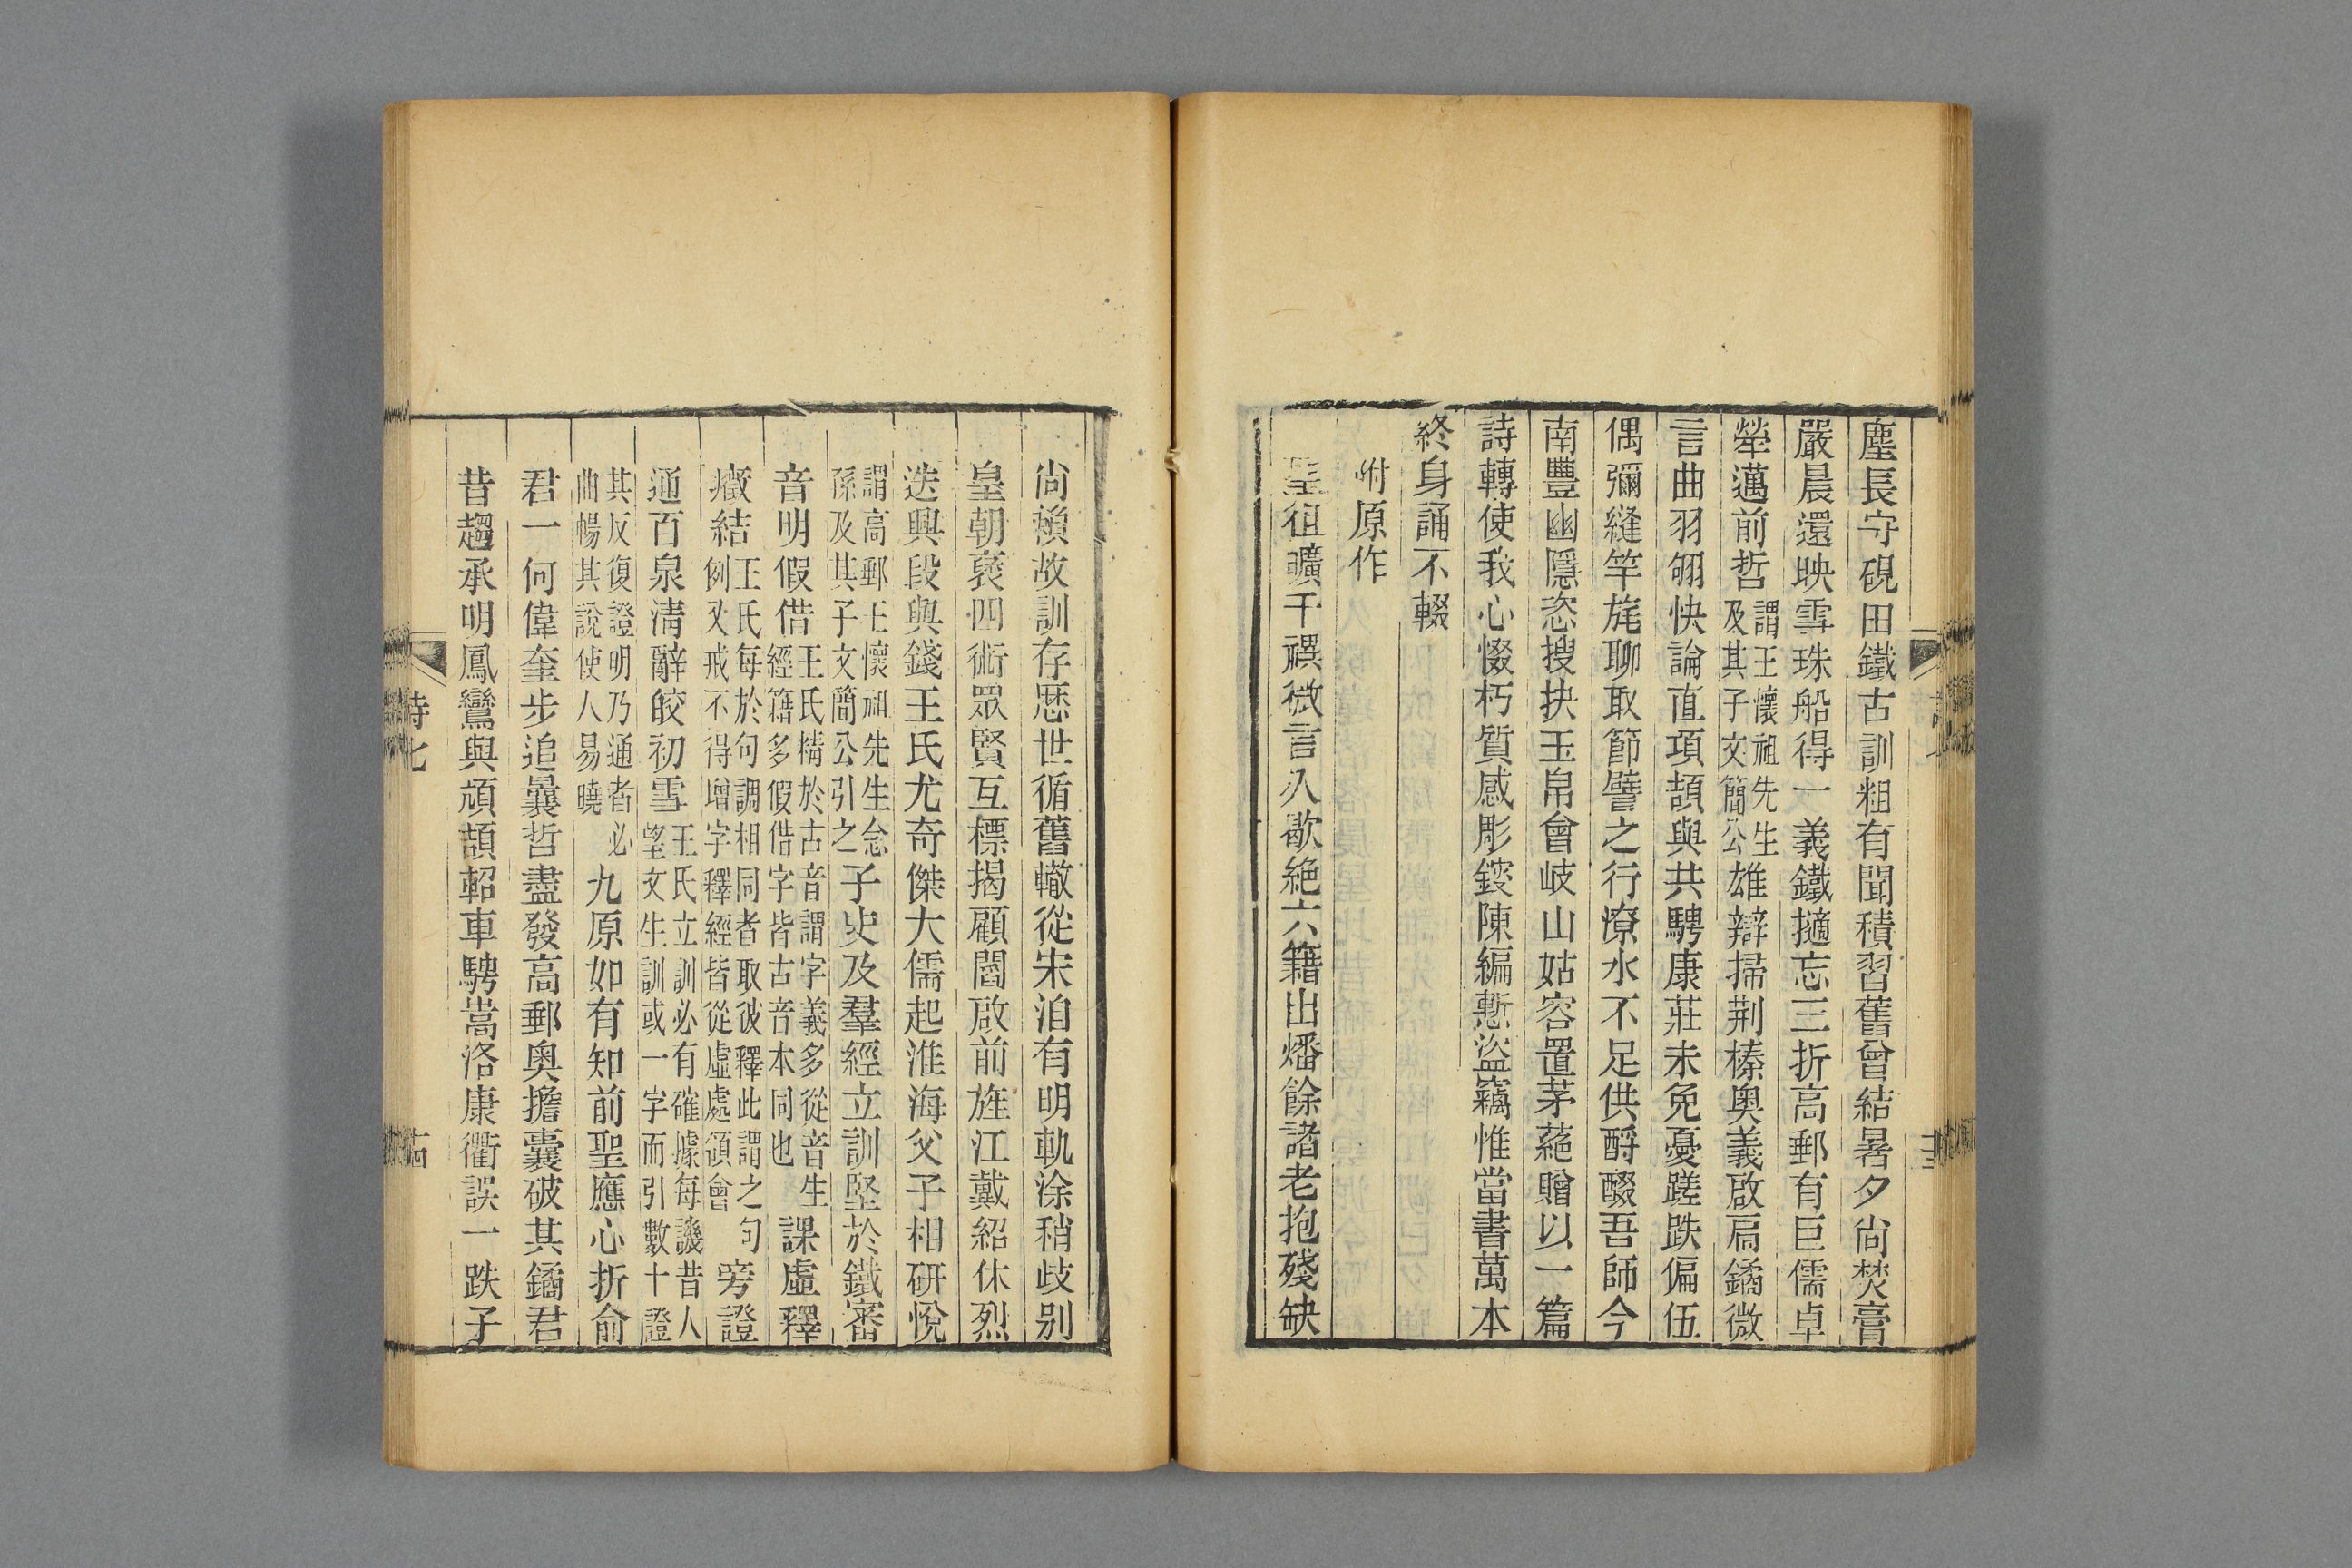 塵長守硯田鐵古訓粗有聞積習舊曾結暑夕尚焚膏
嚴晨還映雪珠船得一義鐵擿忘三折高郵有巨儒卓
犖邁前哲謂王懷祖先生及其子文簡公雄辯掃荆榛奧義啟扃鐍微
言曲羽翎快論直項頡與共騁康莊未免憂蹉跌偏伍
偶彌縫竿旄聊取節譬之行潦水不足供酹醊吾師今
南豐幽隱恣搜抉玉帛會岐山姑容置茅蕝贈以一篇
詩轉使我心惙朽質感彫鎪陳編慙盜竊惟當書萬本
終身誦不輟
附原作
聖徂曠千禩微言久歇絶六籍出燔餘諸老抱殘缺
尚賴故訓存歷世循舊轍從宋洎有明軌涂稍歧别
皇朝褎四術眾賢互標揭顧閻啟前旌江戴紹休烈
迭興段與錢王氏尤奇傑大儒起淮海父子相研悅
謂高郵王懷祖先生念孫及其子文簡公引之子史及羣經立訓堅於鐵審
音明假借王氏精於古音謂字義多從音生經籍多假借字皆古音本同也課虛釋
癥結王氏每於句調相同者取彼釋此謂之句例又戒不得增字釋經皆從虛處領會旁證
通百泉淸辭皎初雪王氏立訓必有確據每譏昔人望文生訓或一字而引數十證
其反復證明乃通者必曲暢其說使人易曉九原如有知前聖應心折俞
君一何偉奎步追曩哲盡發高郵奧擔囊破其鐍君
昔趨承明鳳鸞與頏頡軺車騁嵩洛康衢誤一跌子
詩七